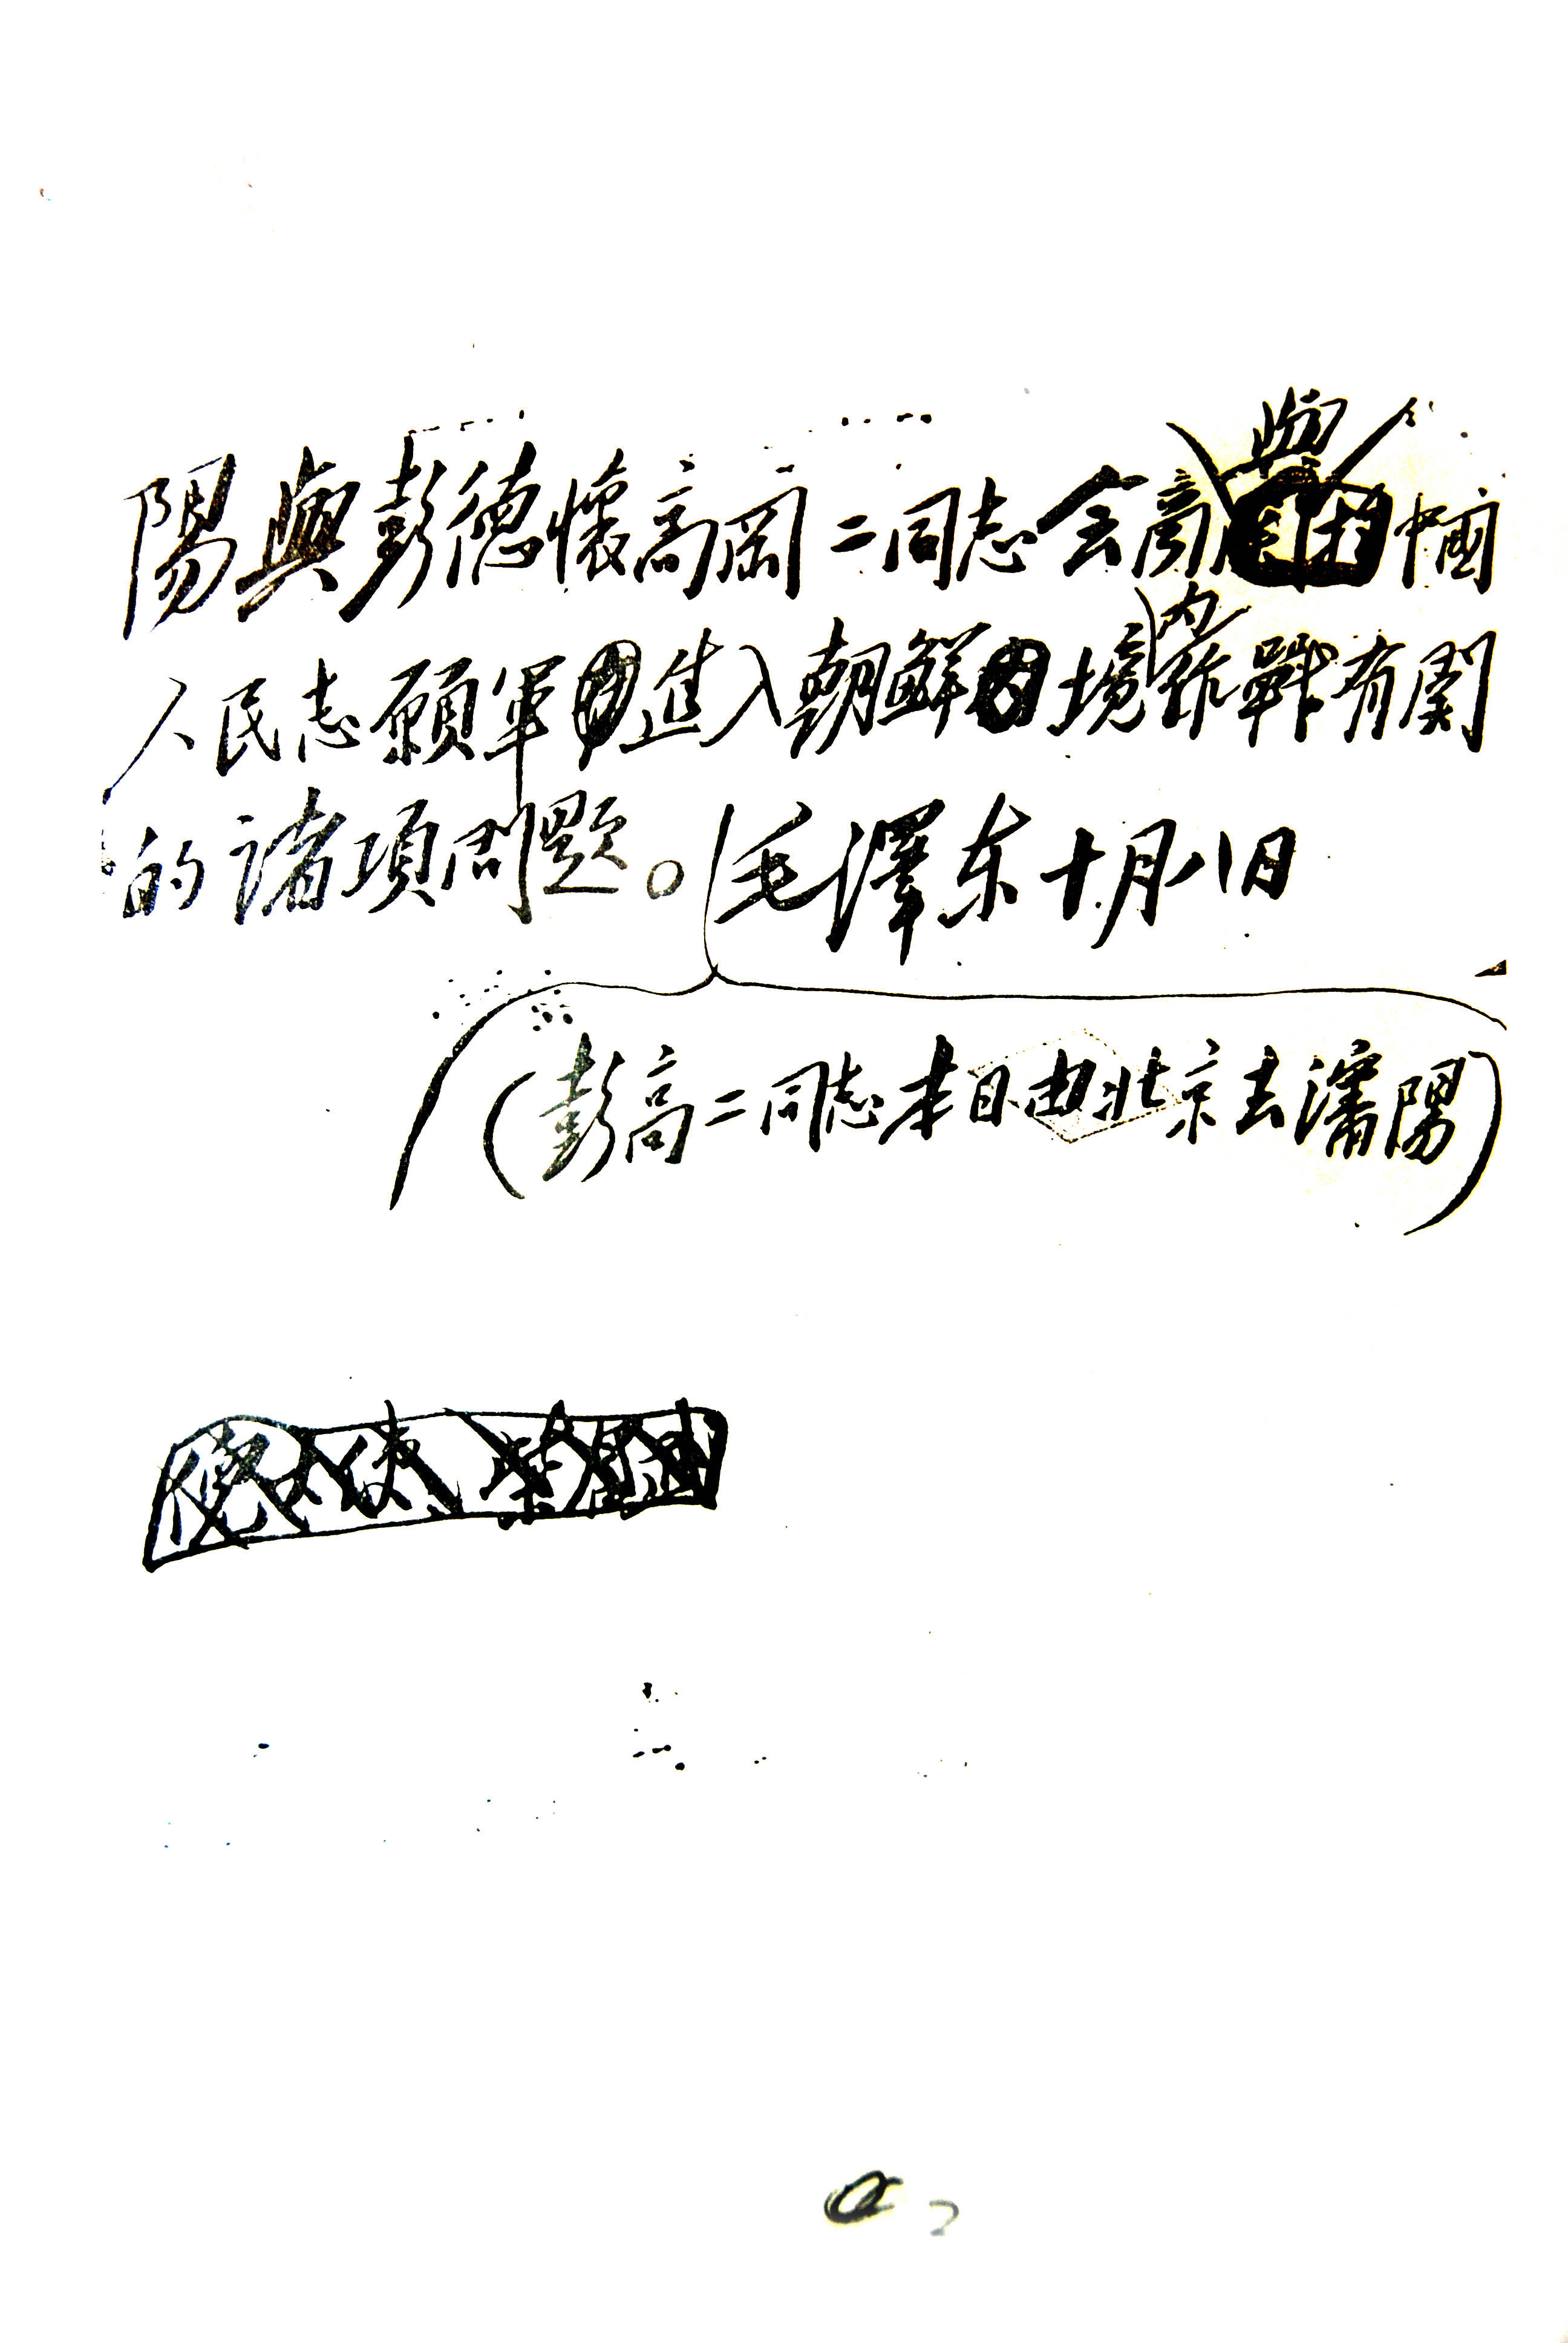 陽與彭德懷高岡二同志会商與中國
人民志願軍進入朝鮮境內作戰有関
的諸項問題。毛澤东十月八日
（彭高二同志本日由北京去瀋陽）